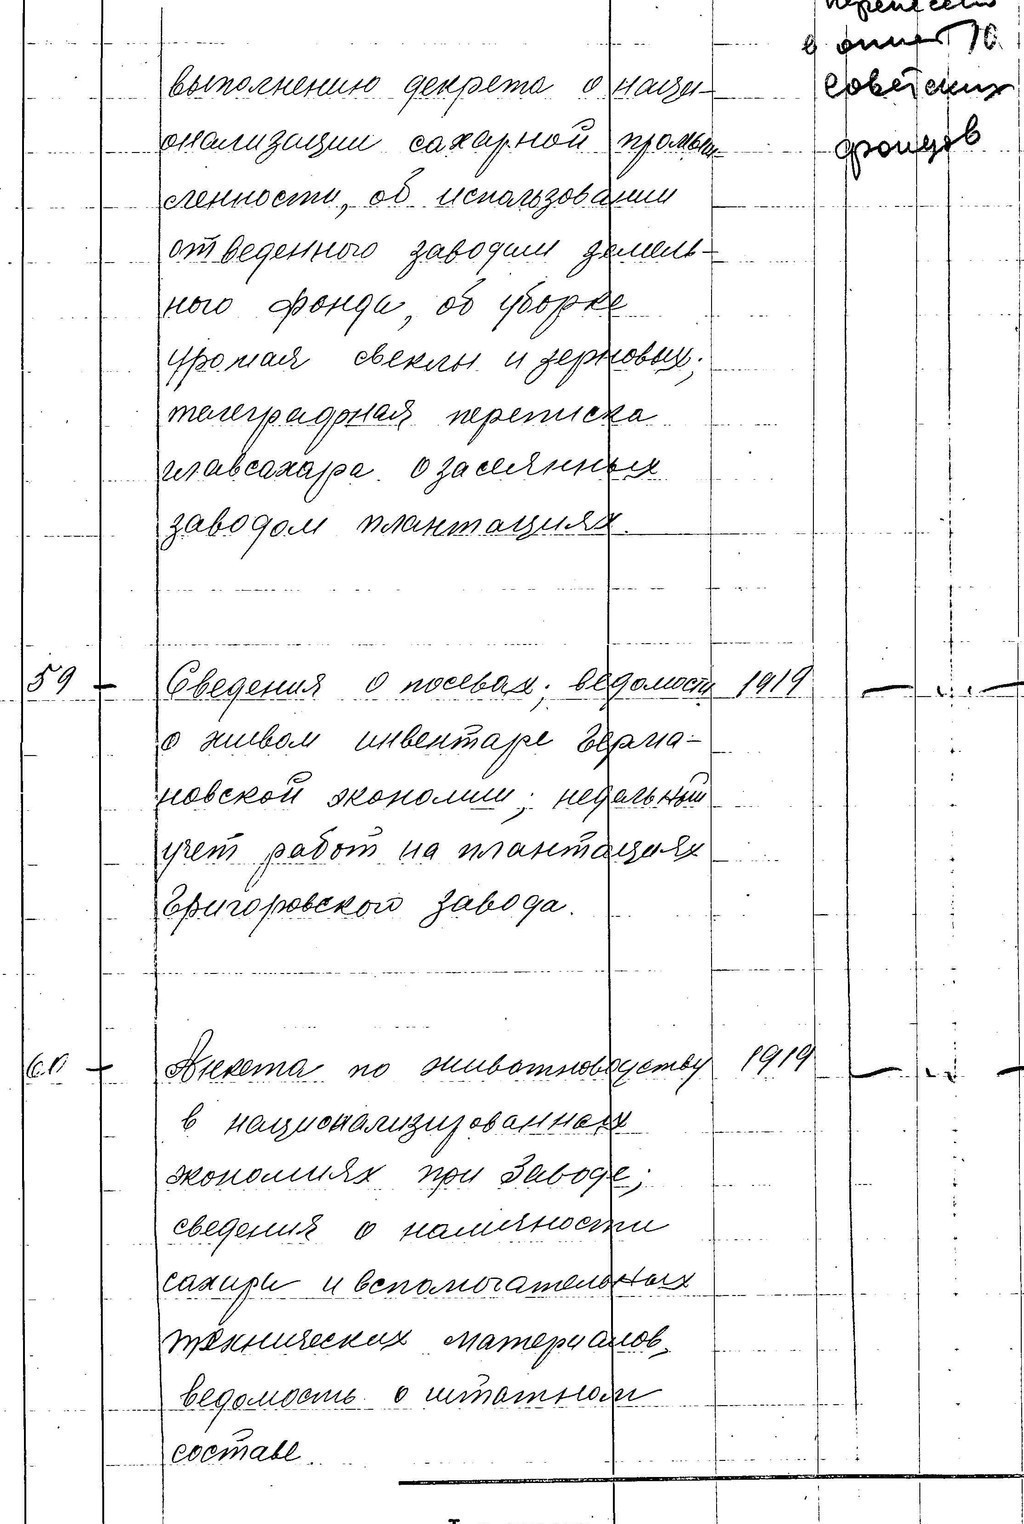 в опись 10
советских
фондов
выполнению декрета о наци-
онализации сахарной промыш-
ленности, об использовании
отведенного заводам земель-
ного фонда, об уборке
урожая свеклы и зерновых;
телеграфная переписка
главсахара о засеянных
заводом плантациях.
59 - Сведения о посевах; ведомости 1919 - " -
о живом инвентаре Герма-
новской экономии; недельный
учет работ на плантациях
Григоровского завода.
60 - Анкета по животноводству 1919 - " -
в национализированных
экономиях при Заводе;
сведения о наличности
сахара и вспомогательных
технических материалов,
ведомость о штатном
составе